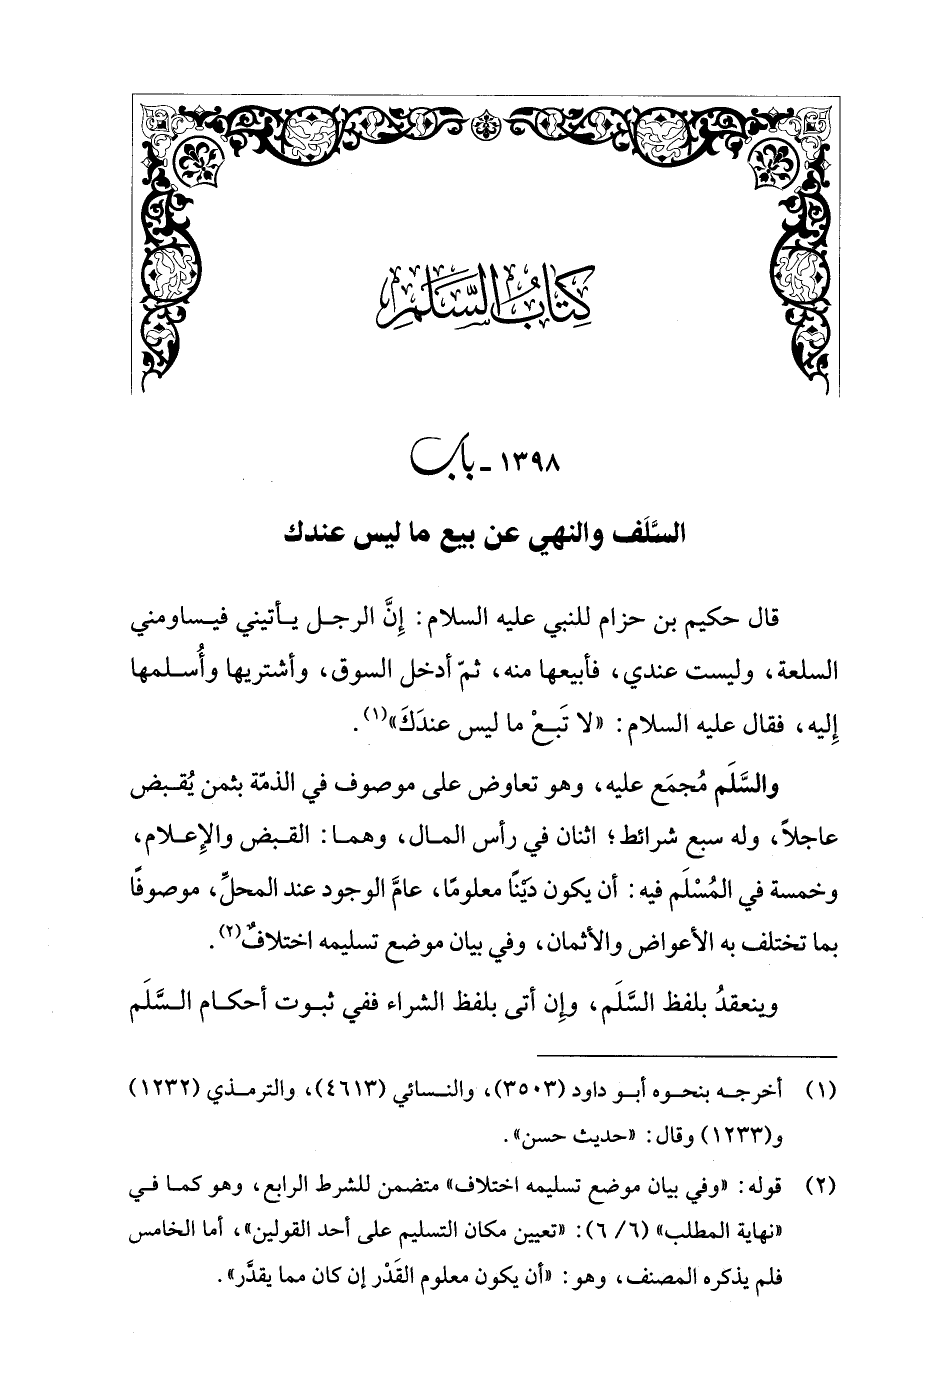 كِتَابُ السَّلَم
١٣٩٨ - باب
السَّلَف والنهي عن بيع ما ليس عندك
قال حكيم بن حزام للنبي عليه السلام: إِنَّ الرجل يأتيني فيساومني
السلعة، وليست عندي، فأبيعها منه، ثمّ أدخل السوق، وأشتريها وأُسلمها
إِليه، فقال عليه السلام: «لا تَبعْ ما ليس عندَكَ»(١).
والسَّلَم مُجمَع عليه، وهو تعاوض على موصوف في الذمّة بثمن يُقبض
عاجلاً، وله سبع شرائط؛ اثنان في رأس المال، وهما: القبض والإِعلام،
وخمسة في المُسْلَم فيه: أن يكون دَيْنًا معلومًا، عامَّ الوجود عند المحلِّ، موصوفًا
بما تختلف به الأعواض والأثمان، وفي بيان موضع تسليمه اختلافٌ(٢).
وينعقدُ بلفظ السَّلَم، وإِن أتى بلفظ الشراء ففي ثبوت أحكام السَّلَم
(١) أخرجه بنحوه أبو داود (٣٥٠٣)، والنسائي (٤٦١٣)، والترمذي (١٢٣٢)
و(١٢٣٣) وقال: «حديث حسن».
(٢) قوله: «وفي بيان موضع تسليمه اختلاف» متضمن للشرط الرابع، وهو كما في
«نهاية المطلب» (٦/ ٦): «تعيين مكان التسليم على أحد القولين»، أما الخامس
فلم يذكره المصنف، وهو: «أن يكون معلوم القَدْر إن كان مما يقدَّر».